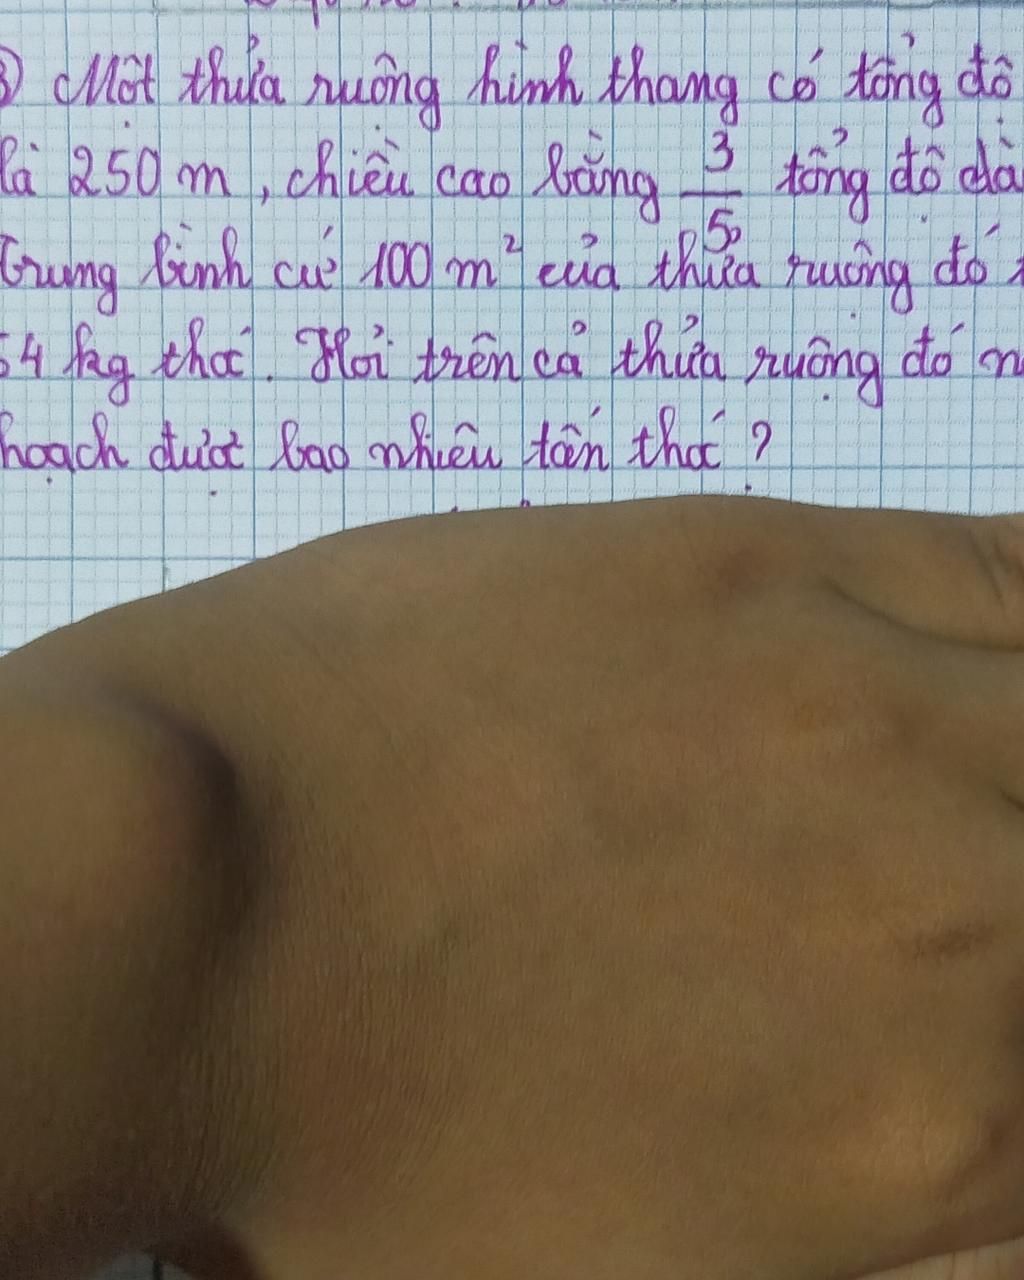 3) Một thửa ruộng hình thang có tổng độ
là 250 m, chiều cao bằng 3/5 tổng độ dà
Trung bình cứ 100 m² của thửa ruộng đó
64 kg thóc. Hỏi trên cả thửa ruộng đó
hoạch được bao nhiêu tấn thóc ?